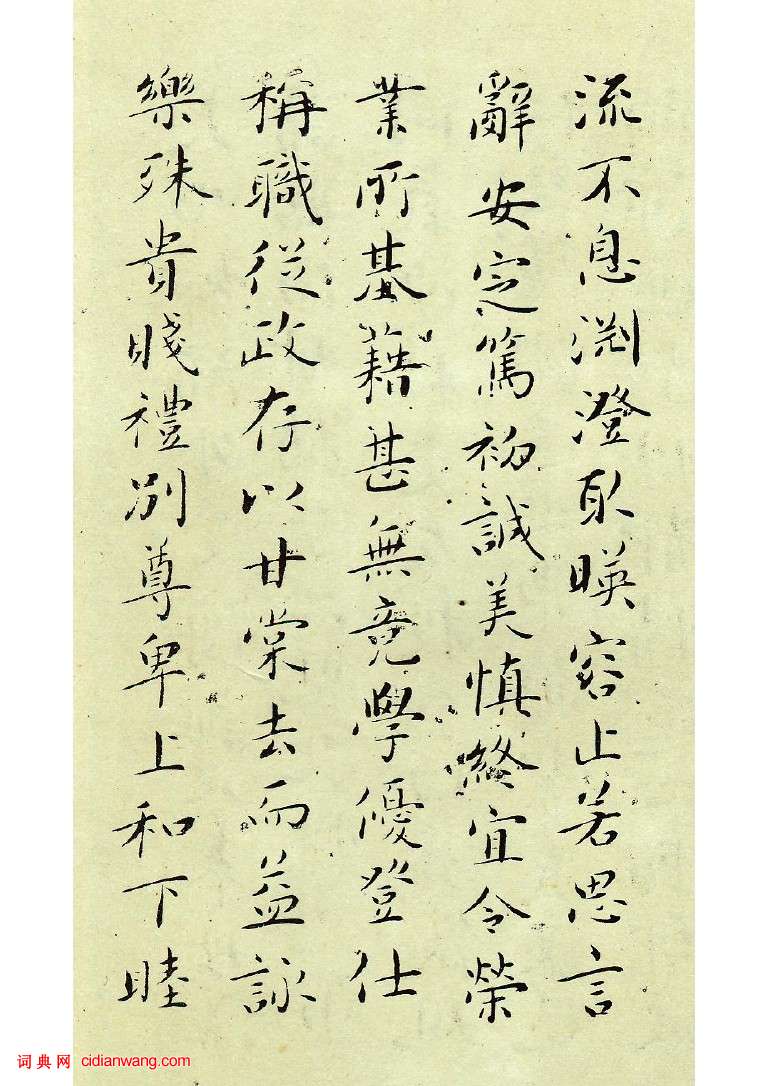 流不息淵澄取暎容止若思言
辭安定篤初誠美慎終宜令榮
業所基藉甚無竟學優登仕
稱職從政存以甘棠去而益詠
樂殊貴賤禮別尊卑上和下睦
词典网 cidianwang.com